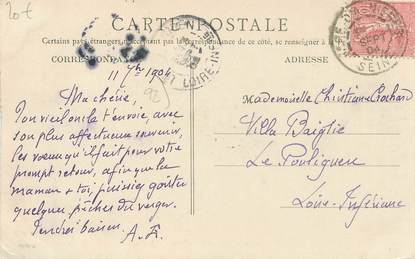 20€
CARTE POSTALE
Certains pays étrangers n'acceptant pas la correspondance de ce côté, se renseigner à
CORRESPONDANCE
ADRESSE
LOIRE-INF
SEINE
11 7bre 1904
Ma chérie,
Ton vieil oncle t'envoie, avec
son plus affectueux souvenir,
les vœux qu'il fait pour votre
prompt retour, afin que ta
maman & toi, puissiez goûter
quelques pêches du verger.
Tendres baisers
Mademoiselle Christiane
Villa
Le Pouliguen
Loire-Inférieure